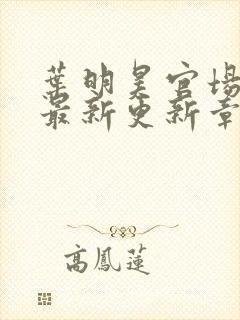 葉明昊官場
最新更新章
高鳳蓮